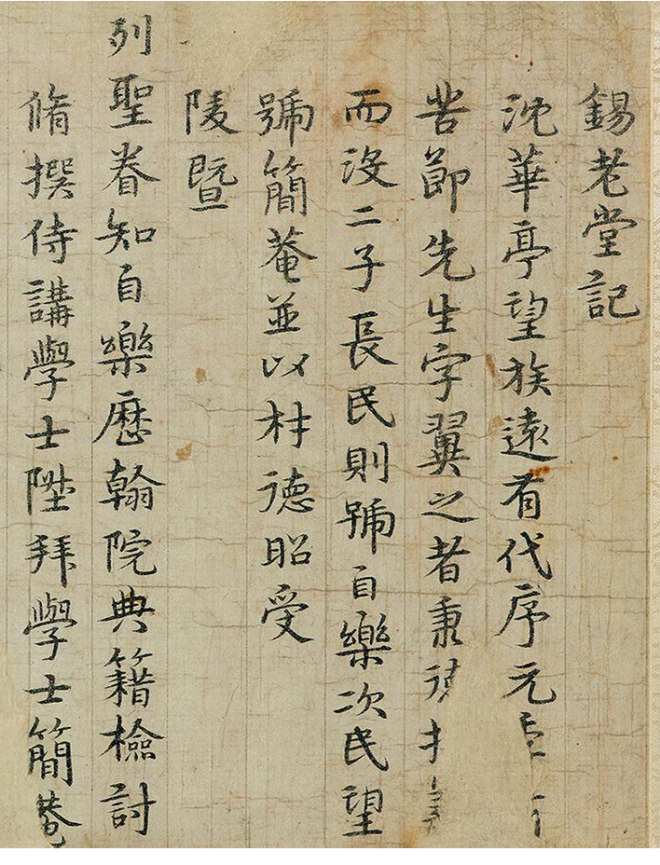 錫老堂記
沈華亭望族遠有代序元
苦節先生字翼之者秉
而沒二子長民則號自樂次民望
號簡菴並以材德昭受
陵暨
列聖眷知自樂歷翰院典籍檢討
脩撰侍講學士陞拜學士簡菴